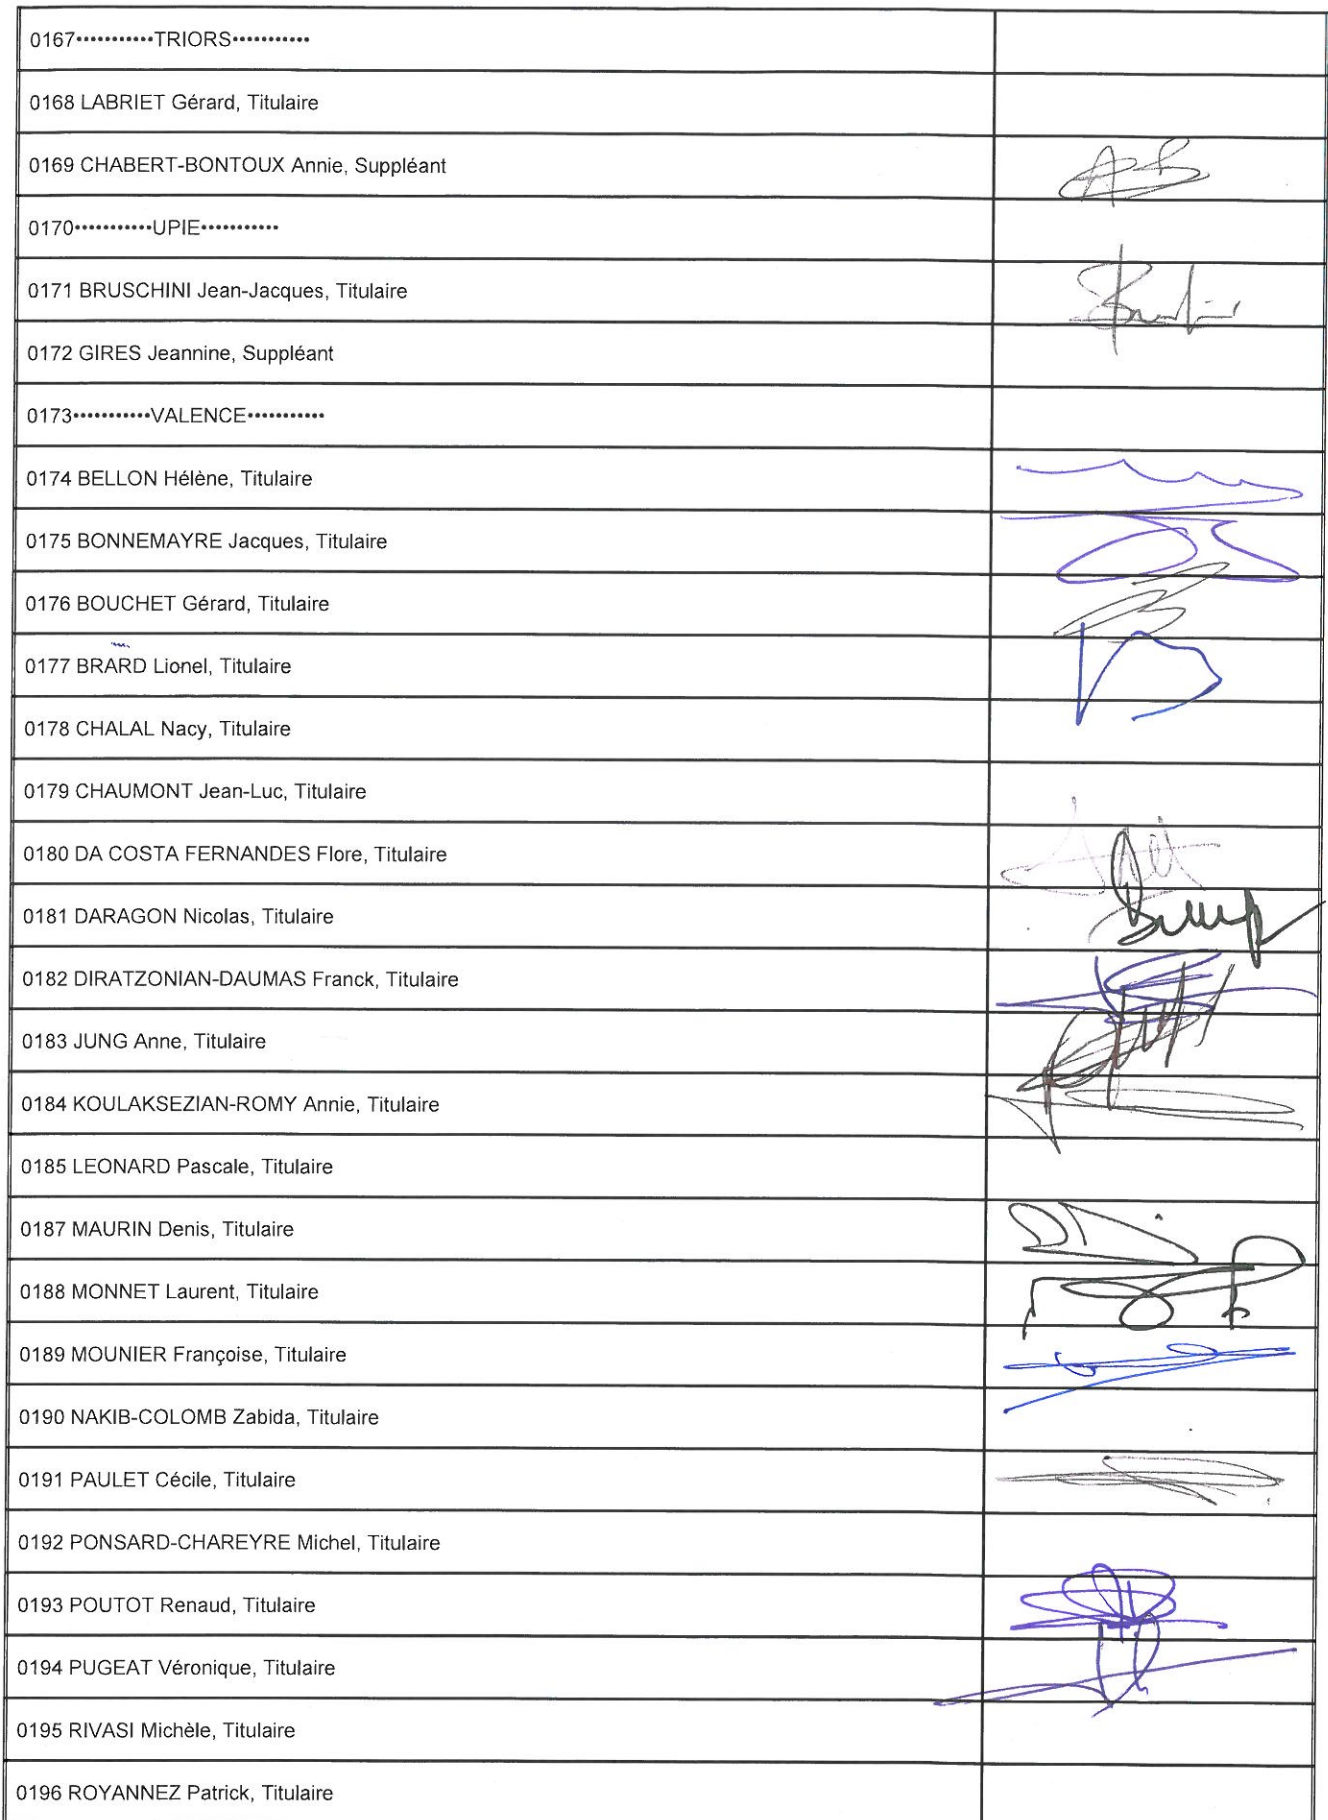 0167•••••••••••TRIORS•••••••••••
0168 LABRIET Gérard, Titulaire
0169 CHABERT-BONTOUX Annie, Suppléant
0170•••••••••••UPIE•••••••••••
0171 BRUSCHINI Jean-Jacques, Titulaire
0172 GIRES Jeannine, Suppléant
0173•••••••••••VALENCE•••••••••••
0174 BELLON Hélène, Titulaire
0175 BONNEMAYRE Jacques, Titulaire
0176 BOUCHET Gérard, Titulaire
0177 BRARD Lionel, Titulaire
0178 CHALAL Nacy, Titulaire
0179 CHAUMONT Jean-Luc, Titulaire
0180 DA COSTA FERNANDES Flore, Titulaire
0181 DARAGON Nicolas, Titulaire
0182 DIRATZONIAN-DAUMAS Franck, Titulaire
0183 JUNG Anne, Titulaire
0184 KOULAKSEZIAN-ROMY Annie, Titulaire
0185 LEONARD Pascale, Titulaire
0187 MAURIN Denis, Titulaire
0188 MONNET Laurent, Titulaire
0189 MOUNIER Françoise, Titulaire
0190 NAKIB-COLOMB Zabida, Titulaire
0191 PAULET Cécile, Titulaire
0192 PONSARD-CHAREYRE Michel, Titulaire
0193 POUTOT Renaud, Titulaire
0194 PUGEAT Véronique, Titulaire
0195 RIVASI Michèle, Titulaire
0196 ROYANNEZ Patrick, Titulaire